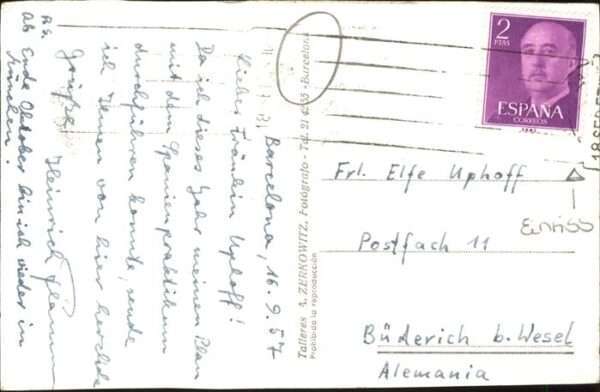 Barcelona, 16.9.57
Liebes Fräulein Uphoff!
Da ich dieses Jahr meinen Plan
mit dem Spanienpraktikum
durchführen konnte, sende
ich Ihnen von hier herzliche
Grüße
Heinrich
P.S.
Ab Ende Oktober bin ich wieder in
München!
Talleres A. ZERKOWITZ, Fotógrafo - Barcelona
Prohibida la reproducción
2
PTAS
ESPAÑA
CORREOS
18 SEP
Frl. Elfe Uphoff
Einriss
Postfach 11
Büderich b. Wesel
Alemania